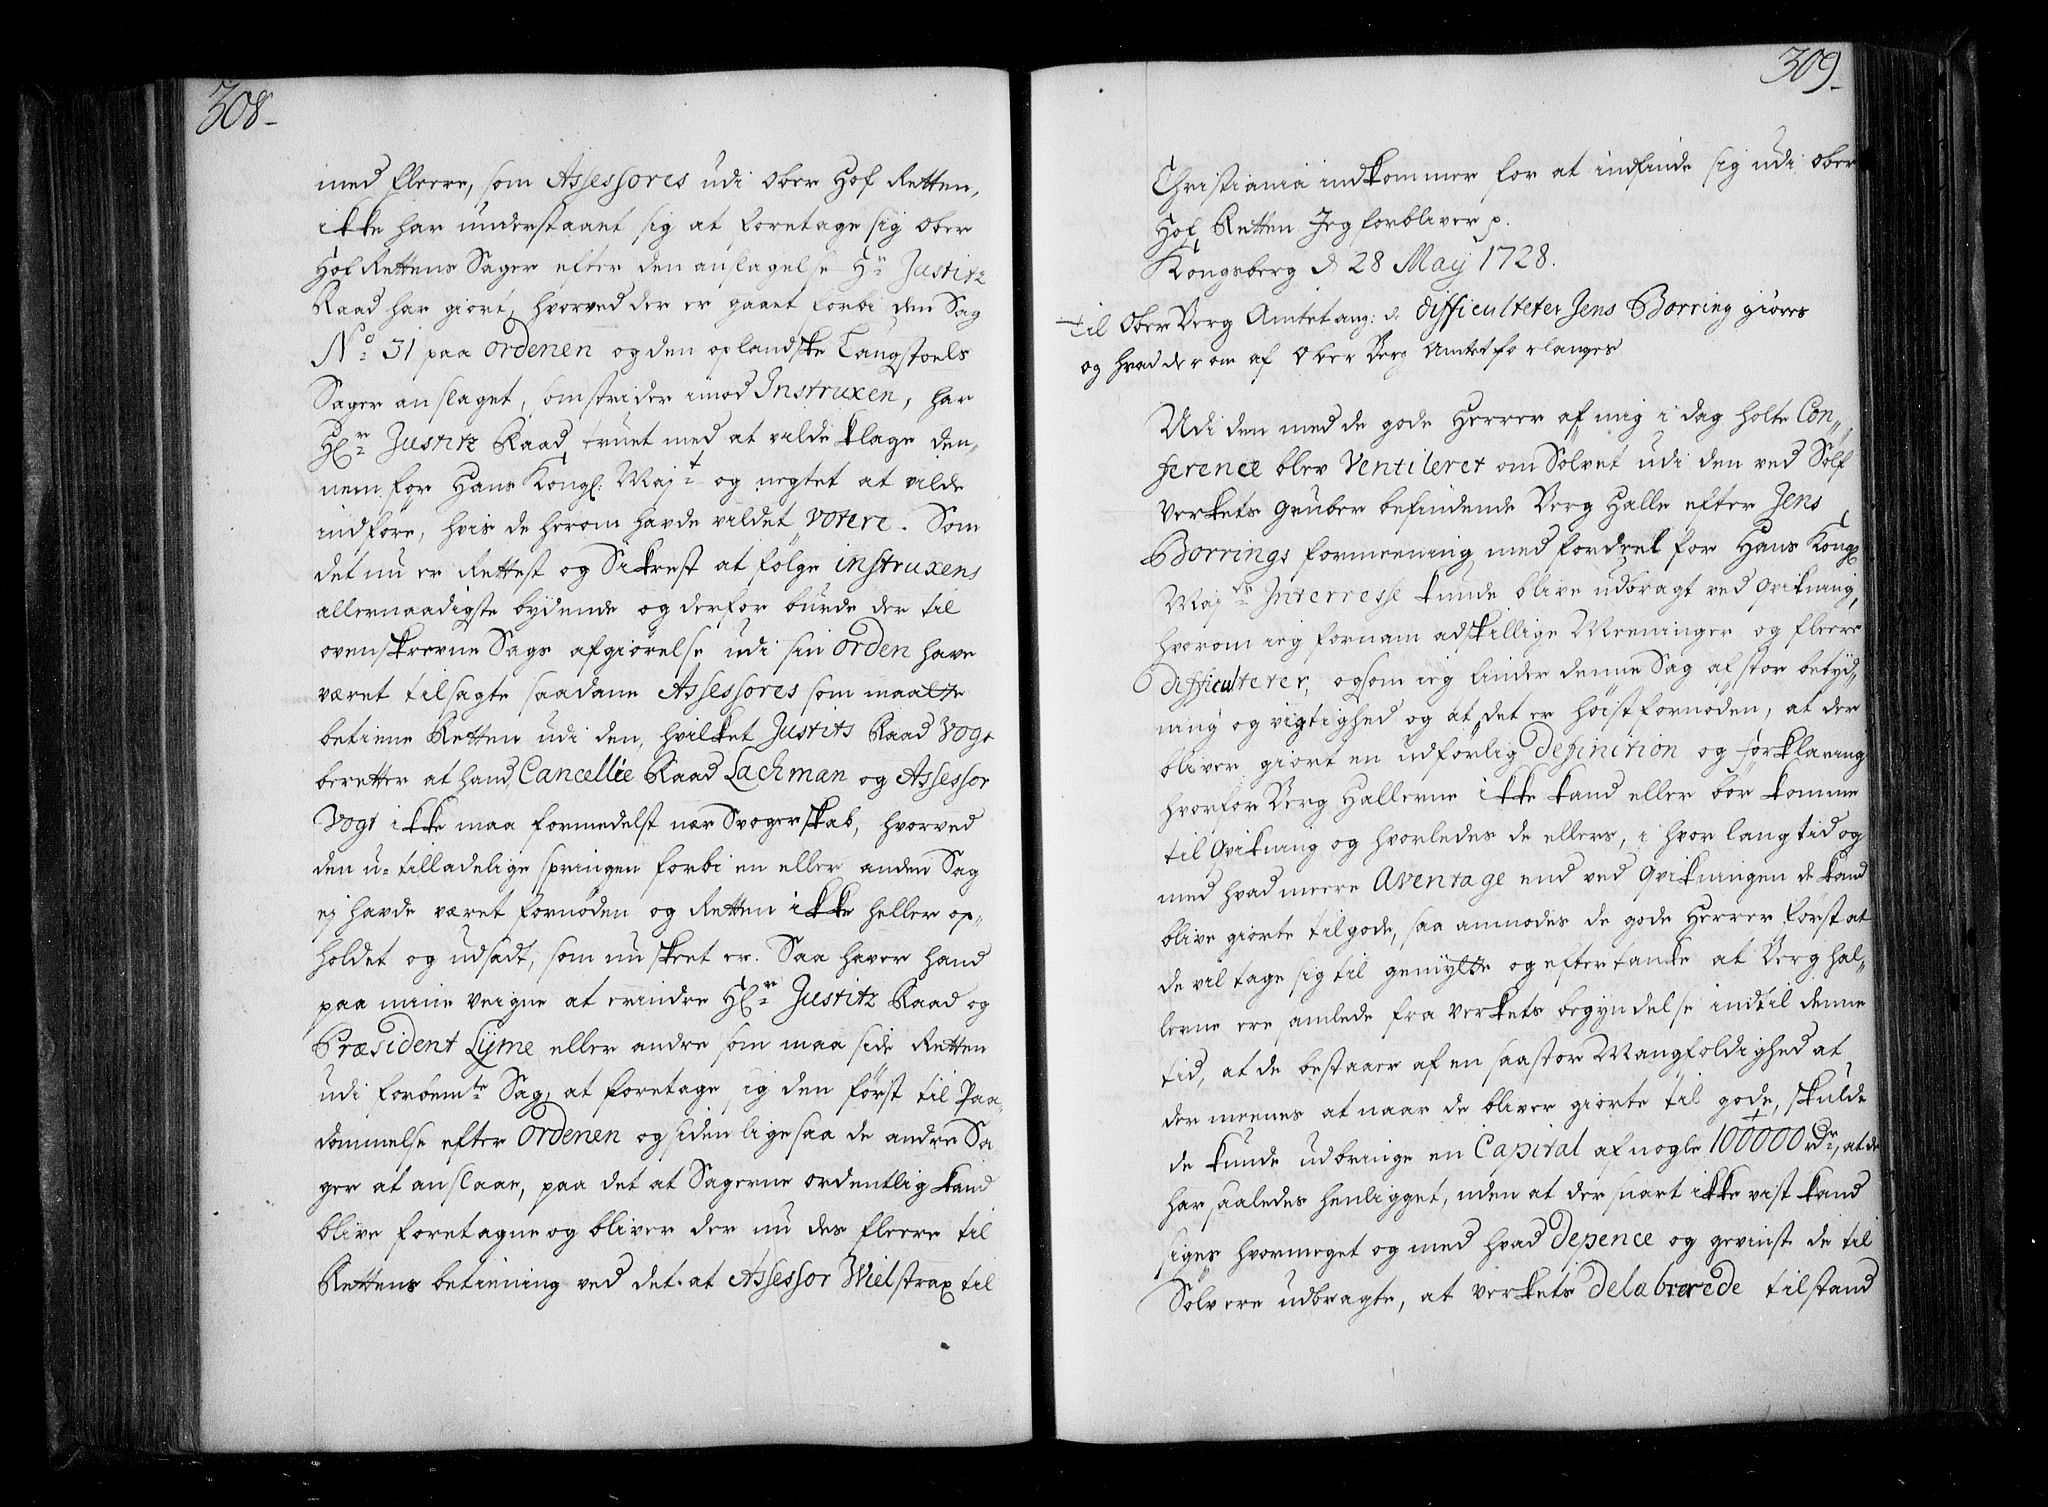 308-
med fleere, som Assessores udi Ober Hof Retten,
ikke har understaaet sig at foretage sig Ober
Hof Rettens Sager efter den anslagelse Hr Justitz
Raad har giort, hvorved der er gaaet forbi den Sag
No 31 paa Ordenen og den oplandske Langstoels
Sager anslaget, som strider imod Instruxen, har
Hr Justitz Raad truet med at vilde klage den-
nem for Hans Kongl: Mayt og negtet at vilde
indføre, hvis de herom havde vildet votere. Som
det nu er Rettest og Sikrest at følge instruxens
allernaadigste bydende og derfor burde der til
ovenskrevne Sags afgiørelse udi sin Orden have
været tilsagte saadane Assessores som maatte
betiene Retten udi den, hvilket Justits Raad Vogt
beretter at hand, Cancellie Raad Lachman og Assessor
Vogt ikke maa formedelst nær Svogerskab, hvorved
den u-tilladelige springen forbi en eller anden Sag
ej havde været fornøden og Retten ikke heller op-
holdet og udsadt, som nu skeet er. Saa haver hand
paa mine veigne at erindre Hr Justitz Raad og
Præsident Lijme eller andre som maa side Retten
udi forbemte Sag, at foretage sig den først til Paa-
dømmelse efter Ordenen og siden ligesaa de andre Sa-
ger at anslaae, paa det at Sagerne ordentlig kand
blive foretagne og bliver der nu des fleere til
Rettens betiening ved det at Assessor Wiel strax til
309-
Christiania indkommer for at indfinde sig udi Ober
Hof Retten. Jeg forbliver p.
Kongsberg d 28 Maij 1728.
Til Ober Berg Amtet ang: d. difficulteter Jens Borring giøres
og hvad derom af Ober Berg Amtet forlanges
Udi den med de gode Herrer af mig i dag holte Con-
ference blev Ventileret om Sølvet udi den ved Sølf
verkets Gruber befindende Berg Halle efter Jens
Borrings formeening med fordeel for Hans Kongl
Mayts Interresse kunde blive udbragt ved qvikning,
hvorom ieg fornam adskillige Meeninger og fleere
difficulteter, og som ieg finder denne Sag af stor betyd-
ning og vigtighed og at det er høist fornøden, at der
bliver giort en udførlig Definition og forklaring
hvorfor Berg Hallerne ikke kand eller bør komme
til Qvikning og hvorledes de ellers, i hvor lang tid og
med hvad meere Aventage end ved Qvikningen de kand
blive giorte til gode, saa anmodes de gode Herrer først at
de vil tage sig til gemytte og eftertanke at Berg hal-
lerne ere samlede fra verkets begyndelse indtil denne
tid, at de bestaaer af en saa stor Mangfoldighed at
der meenes at naar de bliver giorte til gode, skulde
de kunde udbringe en Capital af nogle 100000 rdr, at de
har saaledes henligget, uden at der snart ikke vist kand
siges hvormeget og med hvad depence og gevinst de til
Sølv ere udbragte, at verkets delabrerede tilstand